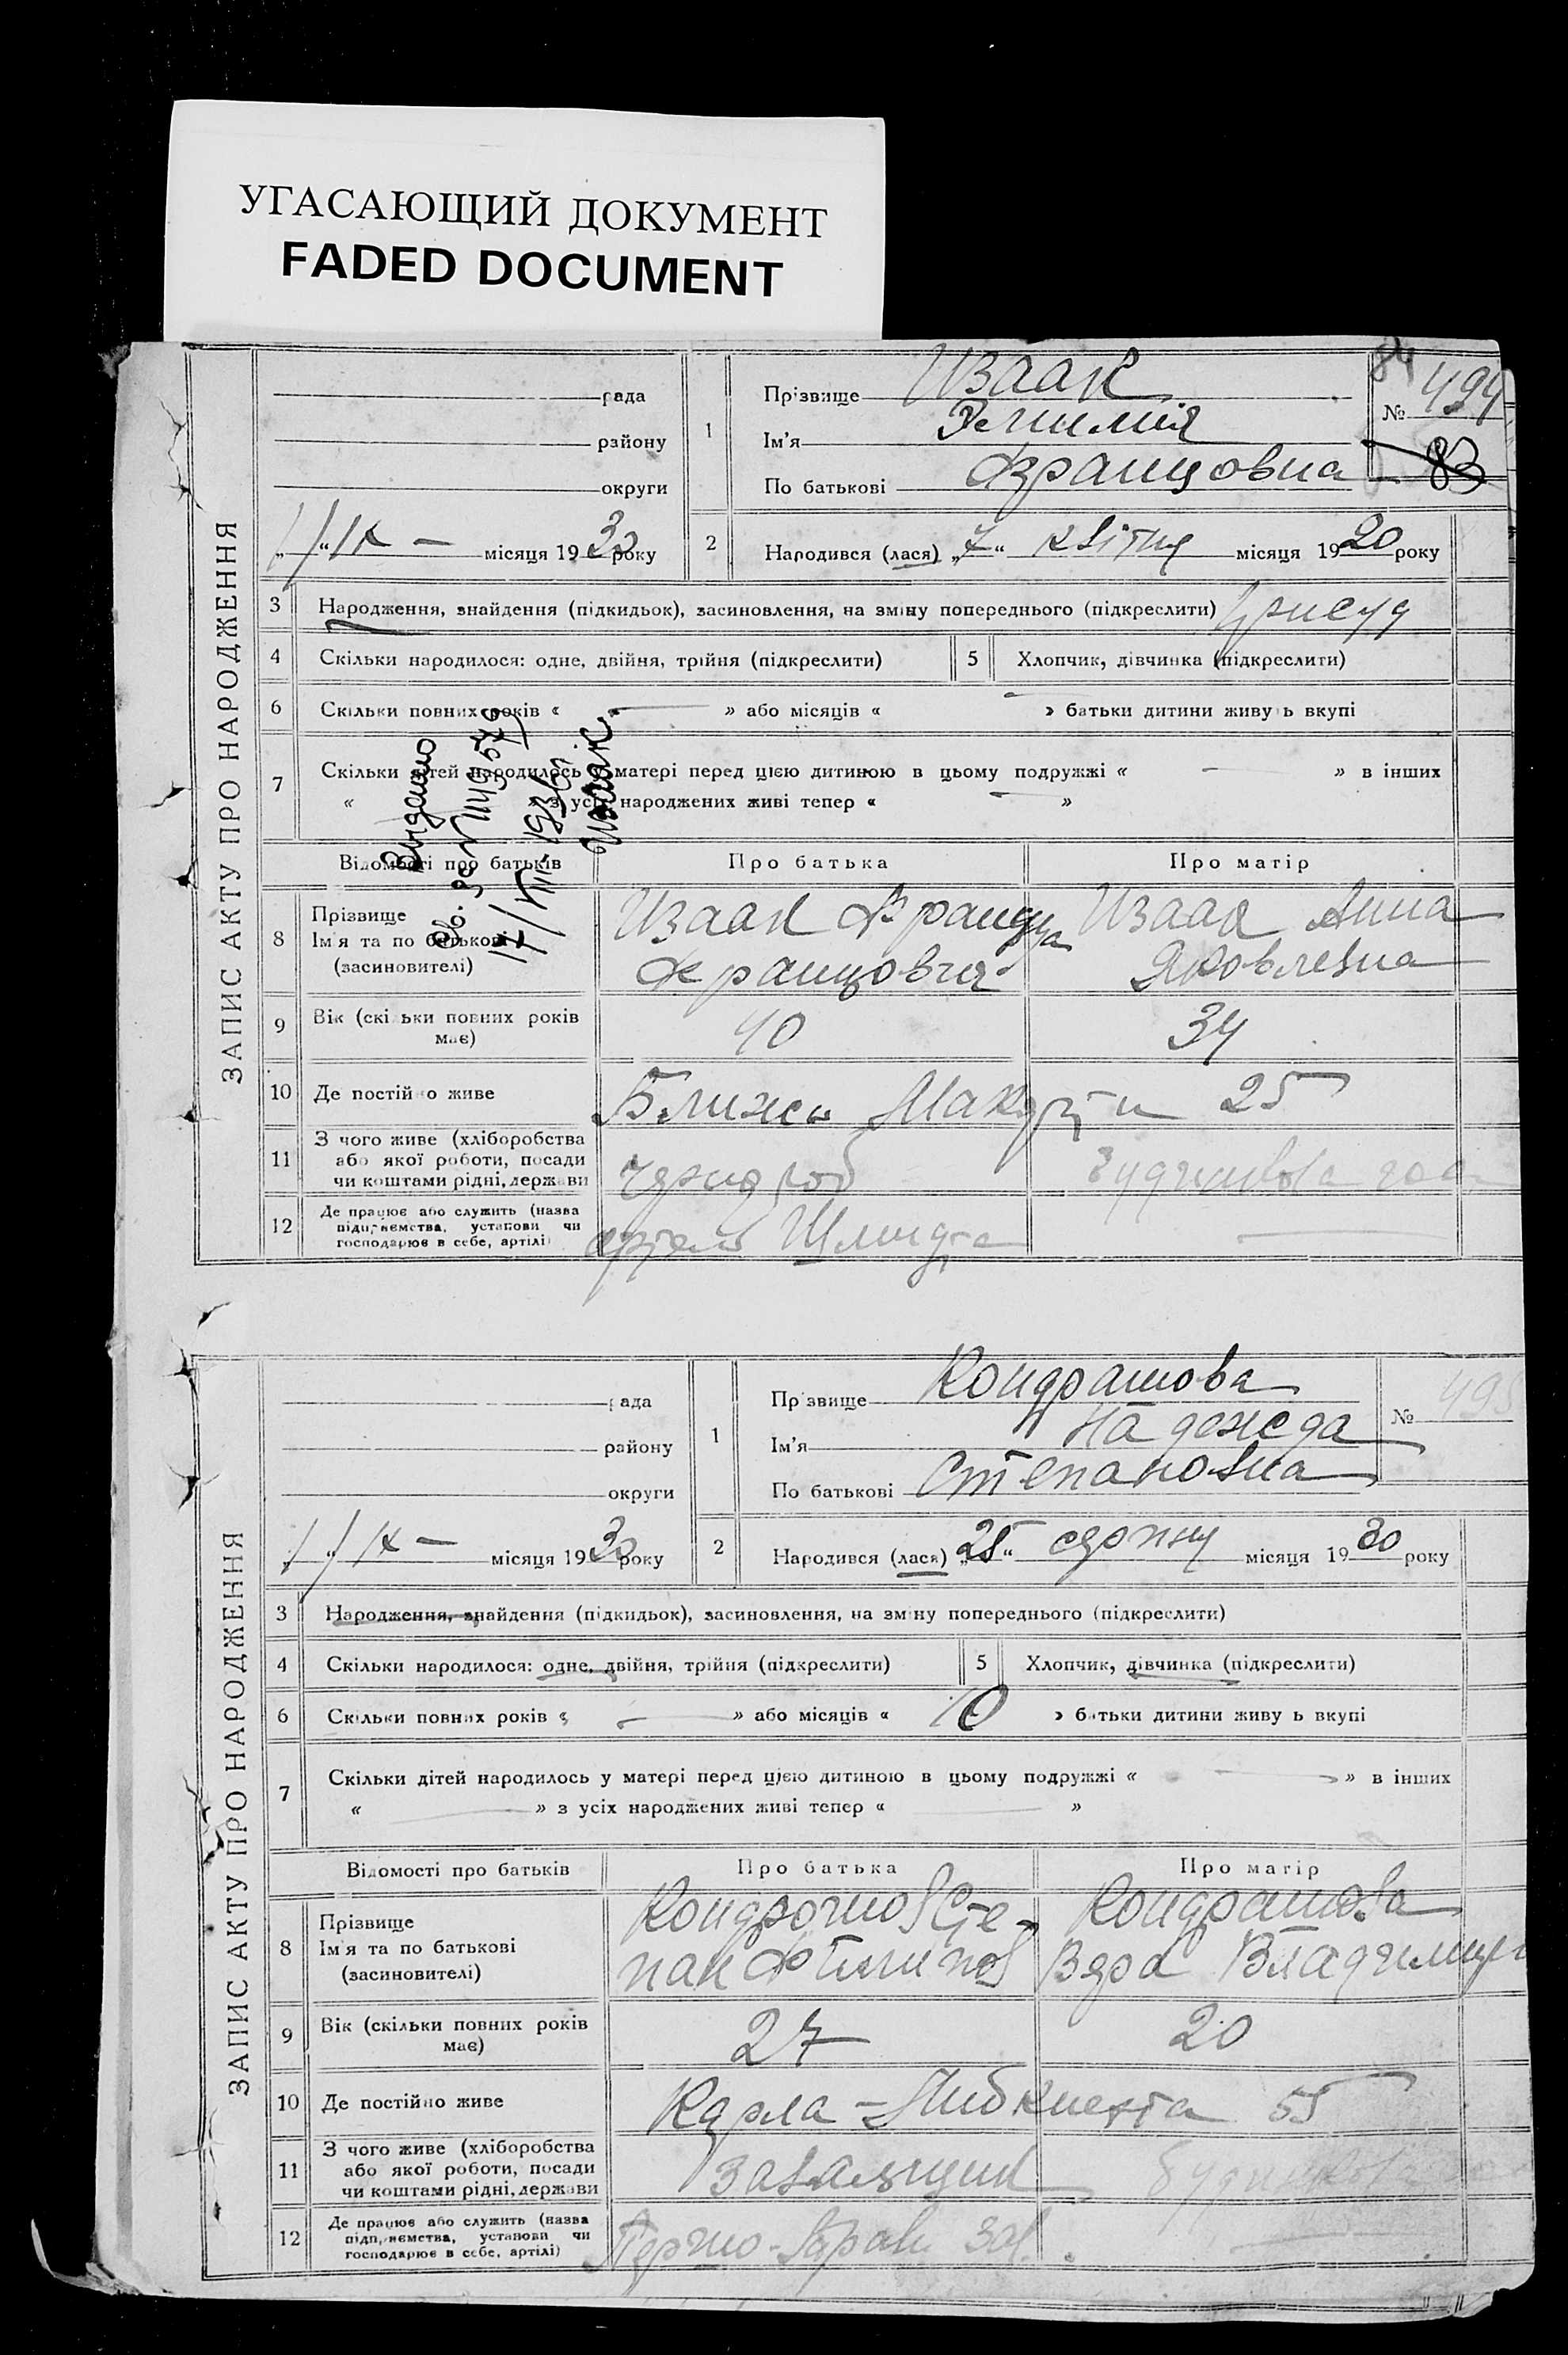 УГАСАЮЩИЙ ДОКУМЕНТ
FADED DOCUMENT
ЗАПИС АКТУ ПРО НАРОДЖЕННЯ
рада
району
округи
1/IX — місяця 1930 року
1
Прізвище Изаак
Ім'я
По батькові Францовна
84
№ 494
83
2
Народився (лася) „7“ квітня місяця 1920 року
3 Народження, знайдення (підкидьок), засиновлення, на зміну попереднього (підкреслити) присуд
4 Скільки народилося: одне, двійня, трійня (підкреслити)
5 Хлопчик, дівчинка (підкреслити)
6 Скільки повних років « — » або місяців « » батьки дитини живуть вкупі
7 Скільки дітей народилось у матері перед цією дитиною в цьому подружжі « — » в інших
« » з усіх народжених живі тепер « — »
Видано
св. за №
17/VIII 1936
Изаак
Відомості про батьків
Про батька
Про матір
8 Прізвище
Ім'я та по батькові
(засиновителі)
Изаак Франц
Францович
Изаак Анна
Яковлевна
9 Вік (скільки повних років
має)
40
34
10 Де постійно живе
Ближн 25
11 З чого живе (хліборобства
або якої роботи, посади
чи коштами рідні, держави
чорнороб
12 Де працює або служить (назва
підприємства, установи чи
господарює в себе, артілі)
артель Шмидта
—
ЗАПИС АКТУ ПРО НАРОДЖЕННЯ
рада
району
округи
1/IX — місяця 1930 року
1
Прізвище Кондрашова
Ім'я Надежда
По батькові Степановна
№ 495
2
Народився (лася) „25“ місяця 1930 року
3 Народження, знайдення (підкидьок), засиновлення, на зміну попереднього (підкреслити)
4 Скільки народилося: одне, двійня, трійня (підкреслити)
5 Хлопчик, дівчинка (підкреслити)
6 Скільки повних років « — » або місяців « 10 » батьки дитини живуть вкупі
7 Скільки дітей народилось у матері перед цією дитиною в цьому подружжі « — » в інших
« — » з усіх народжених живі тепер « — »
Відомості про батьків
Про батька
Про матір
8 Прізвище
Ім'я та по батькові
(засиновителі)
Кондрашов Сте-
пан Филипов
Кондрашова
Вера Владимир
9 Вік (скільки повних років
має)
27
20
10 Де постійно живе
Карла-Либкнехта 55
11 З чого живе (хліборобства
або якої роботи, посади
чи коштами рідні, держави
12 Де працює або служить (назва
підприємства, установи чи
господарює в себе, артілі)
зав.
—